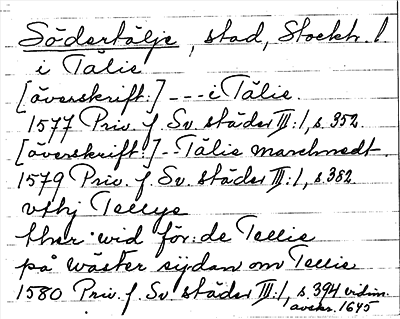 Södertälje, stad, Stockh. l.
i Tälie
[överskrift:] - - - i Tälie.
1577 Priv. f. Sv. städer III:1, s. 352.
[överskrift:] - Tälie marchnedt.
1579 Priv. f. Sv. städer III:1, s. 382.
vthj Tellye
ther wid för:de Tellie
på wäster sijdan om Tellie
1580 Priv. f. Sv städer III:1, s. 394 vidim.
avskr. 1645